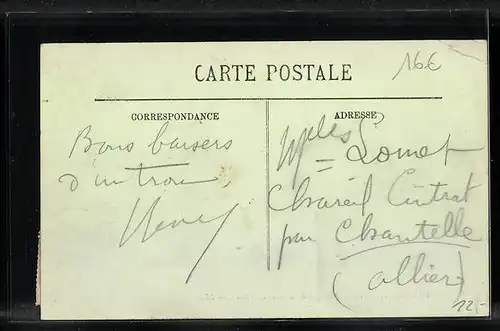 16€
CARTE POSTALE
CORRESPONDANCE
ADRESSE
Bons baisers
d'un trou,
Lomet
Chareil Cintrat
par Chantelle
(Allier)
12,-